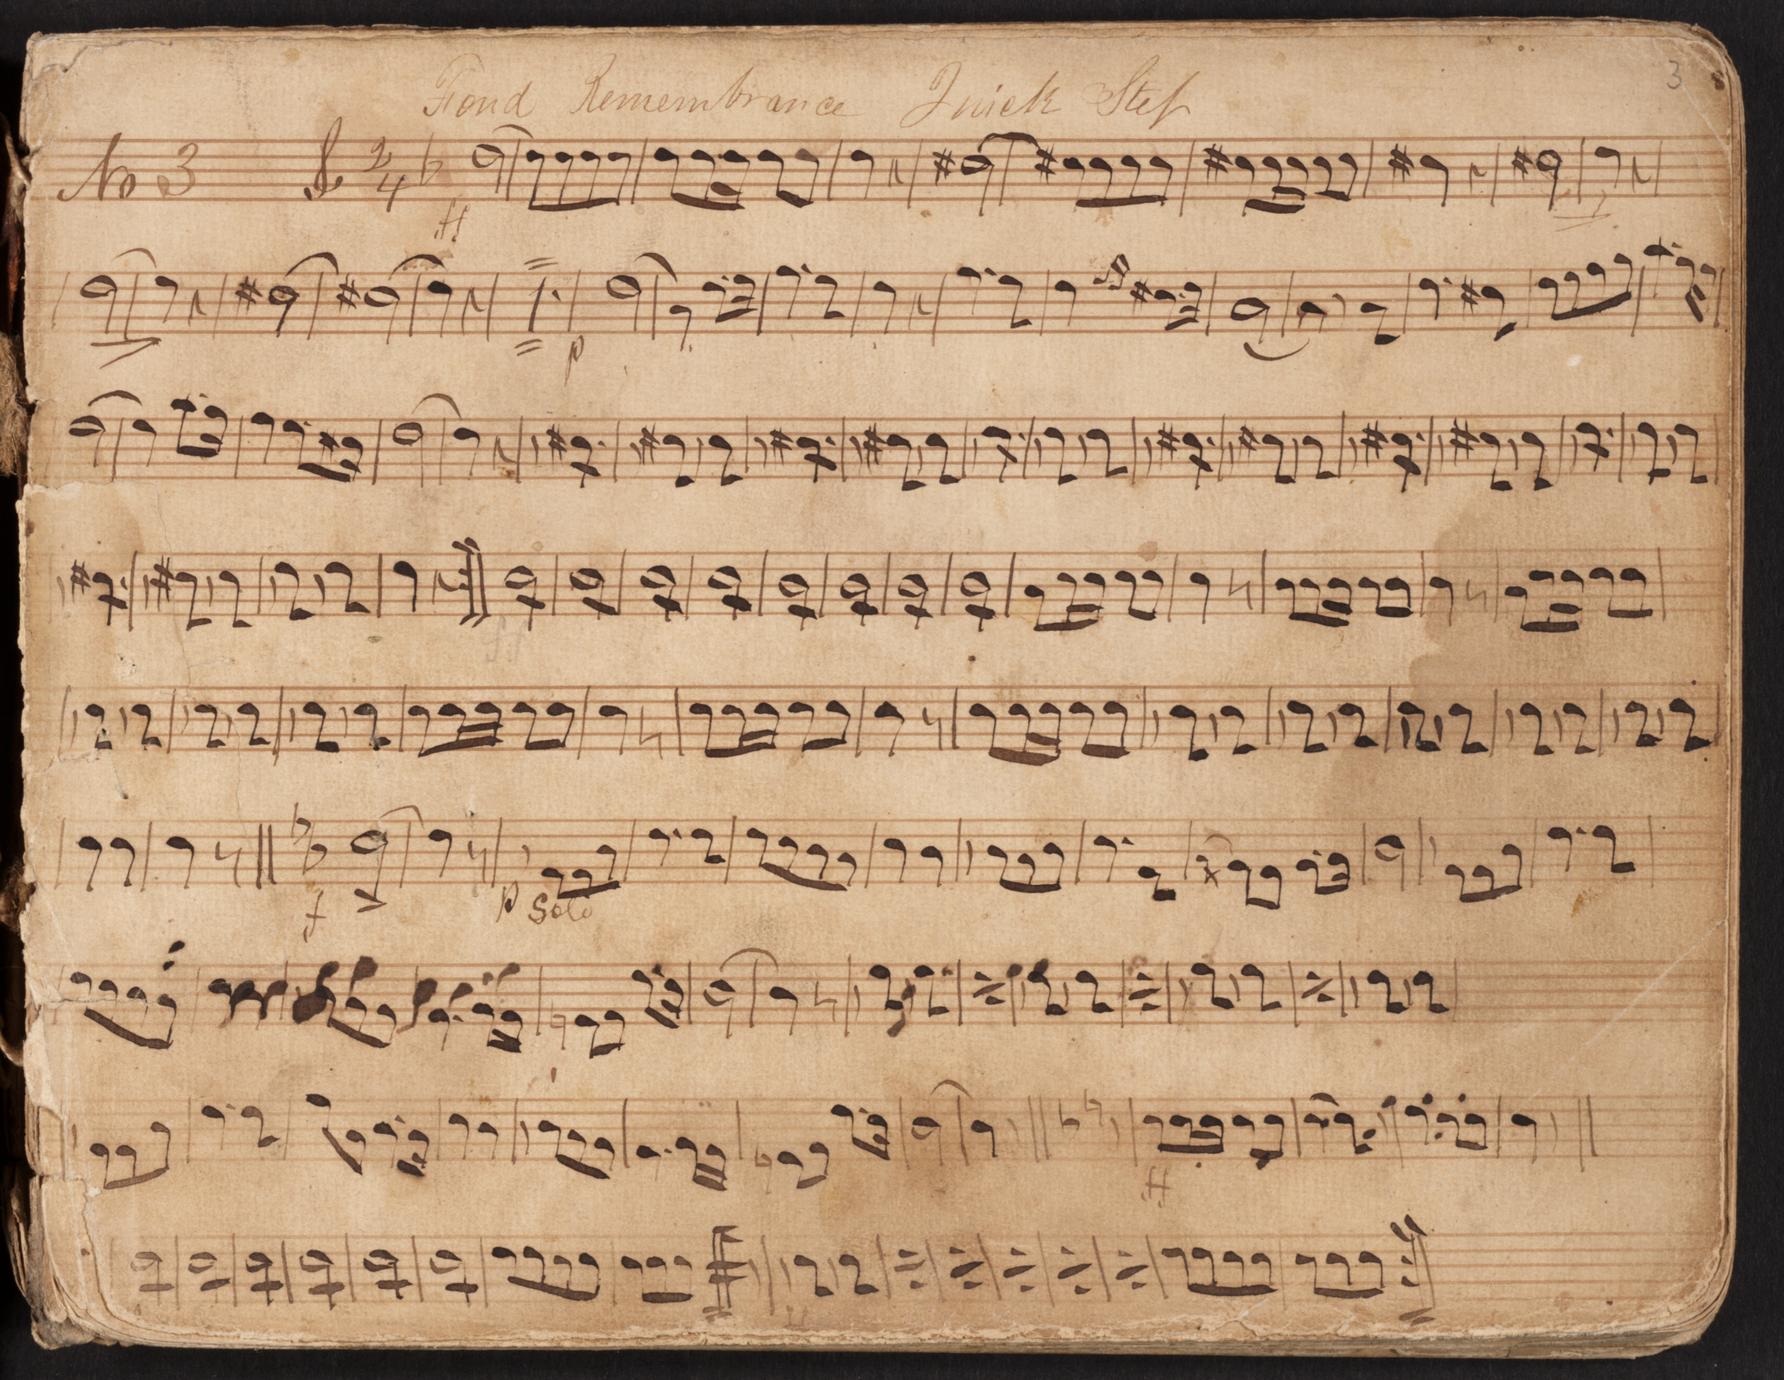 3
Fond Remembrance Quick Step
No 3 2/4
ff
p
ff
f p Solo
ff